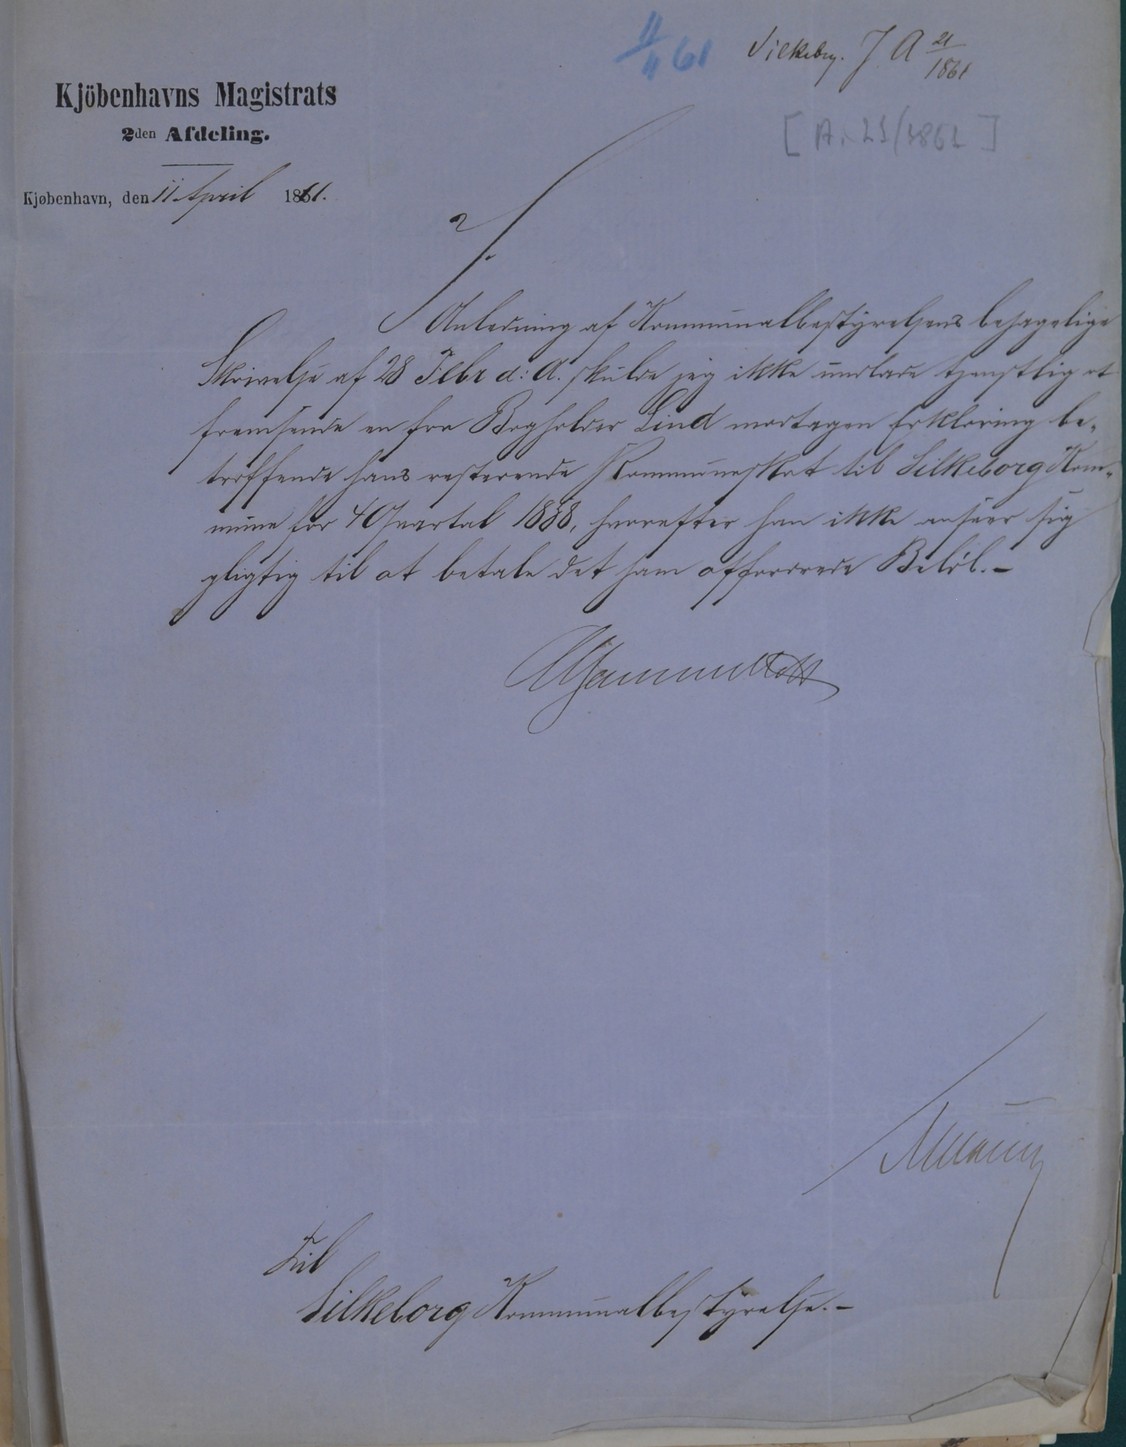 11/4 61
Silkebrg. J. A 21/1861
[A. 21/1861]
Kjöbenhavns Magistrats
2den Afdeling.
Kjøbenhavn, den 11 April 1861.
I
Anledning af Kommunalbestyrelsens behagelige
Skrivelse af 28 Febr d: A. skulde jeg ikke undlade tjenstlig at
fremsende en fra Bogholder Lind modtagen Erklæring be-
træffende hans resterende Kommuneskat til Silkeborg Kom-
mune for 4 Qvartal 1858, hvorefter han ikke anseer sig
pligtig til at betale det ham affordrede Beløb.-
Til
Silkeborg Kommunalbestyrelse.-